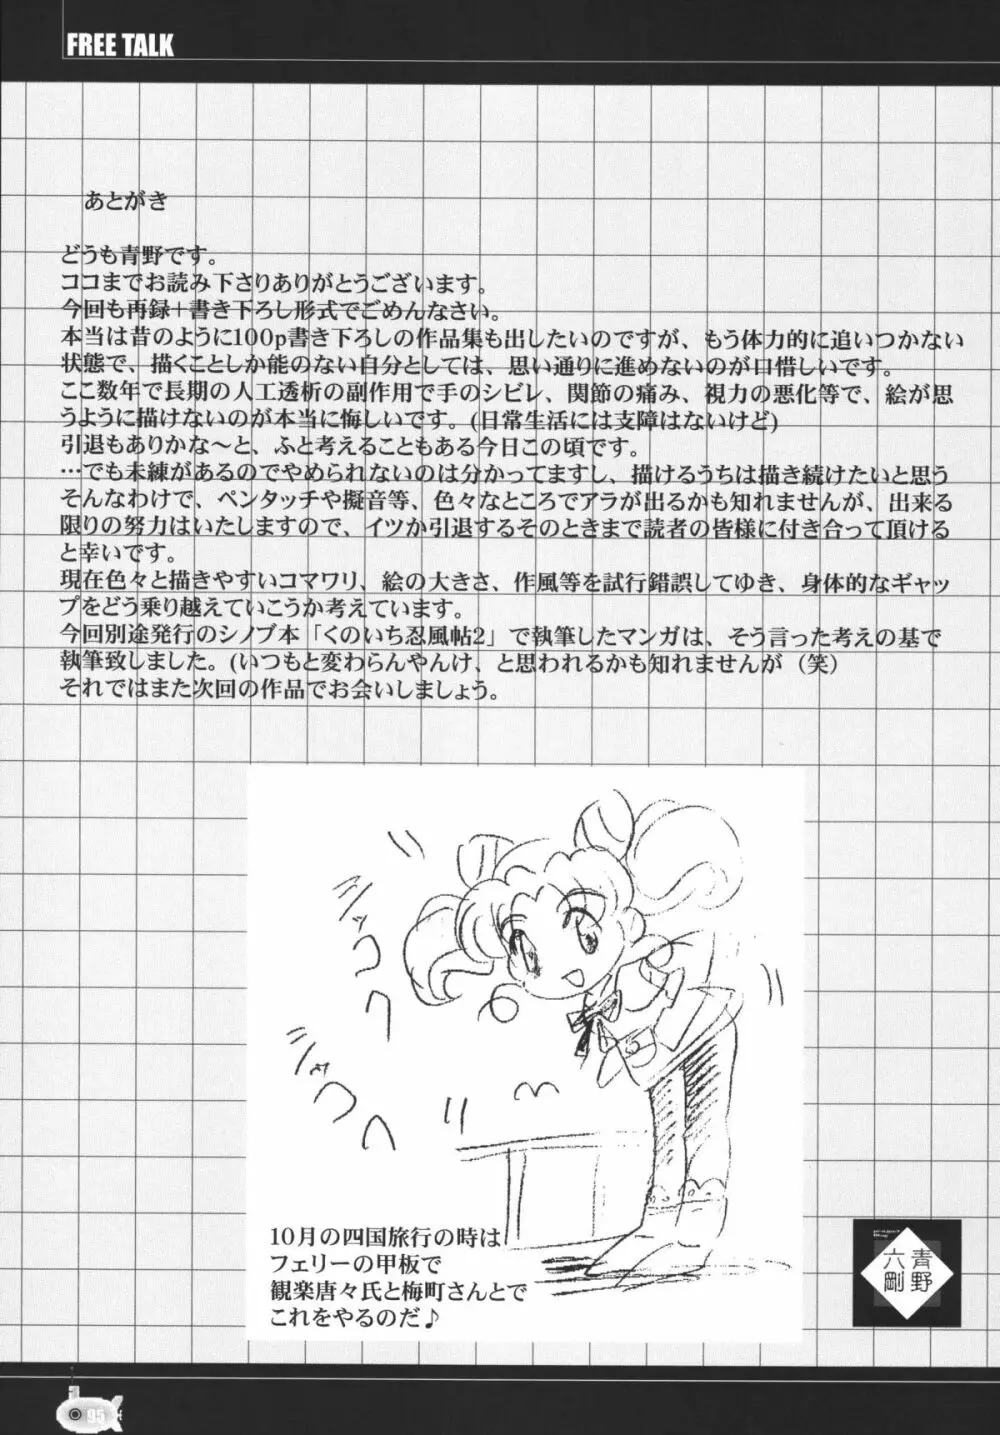 FREE TALK
あとがき
どうも青野です。
ココまでお読み下さりありがとうございます。
今回も再録+書き下ろし形式でごめんなさい。
本当は昔のように100p書き下ろしの作品集も出したいのですが、もう体力的に追いつかない
状態で、描くことしか能のない自分としては、思い通りに進めないのが口惜しいです。
ここ数年で長期の人工透析の副作用で手のシビレ、関節の痛み、視力の悪化等で、絵が思
うように描けないのが本当に悔しいです。(日常生活には支障はないけど)
引退もありかな〜と、ふと考えることもある今日この頃です。
…でも未練があるのでやめられないのは分かってますし、描けるうちは描き続けたいと思う
そんなわけで、ペンタッチや擬音等、色々なところでアラが出るかも知れませんが、出来る
限りの努力はいたしますので、イツか引退するそのときまで読者の皆様に付き合って頂ける
と幸いです。
現在色々と描きやすいコマワリ、絵の大きさ、作風等を試行錯誤してゆき、身体的なギャッ
プをどう乗り越えていこうか考えています。
今回別途発行のシノブ本「くのいち忍風帖2」で執筆したマンガは、そう言った考えの基で
執筆致しました。(いつもと変わらんやんけ、と思われるかも知れませんが（笑）
それではまた次回の作品でお会いしましょう。
シャコ
ヘ
シャコ
ヘ
10月の四国旅行の時は
フェリーの甲板で
観楽唐々氏と梅町さんとで
これをやるのだ♪
青野
六剛
95